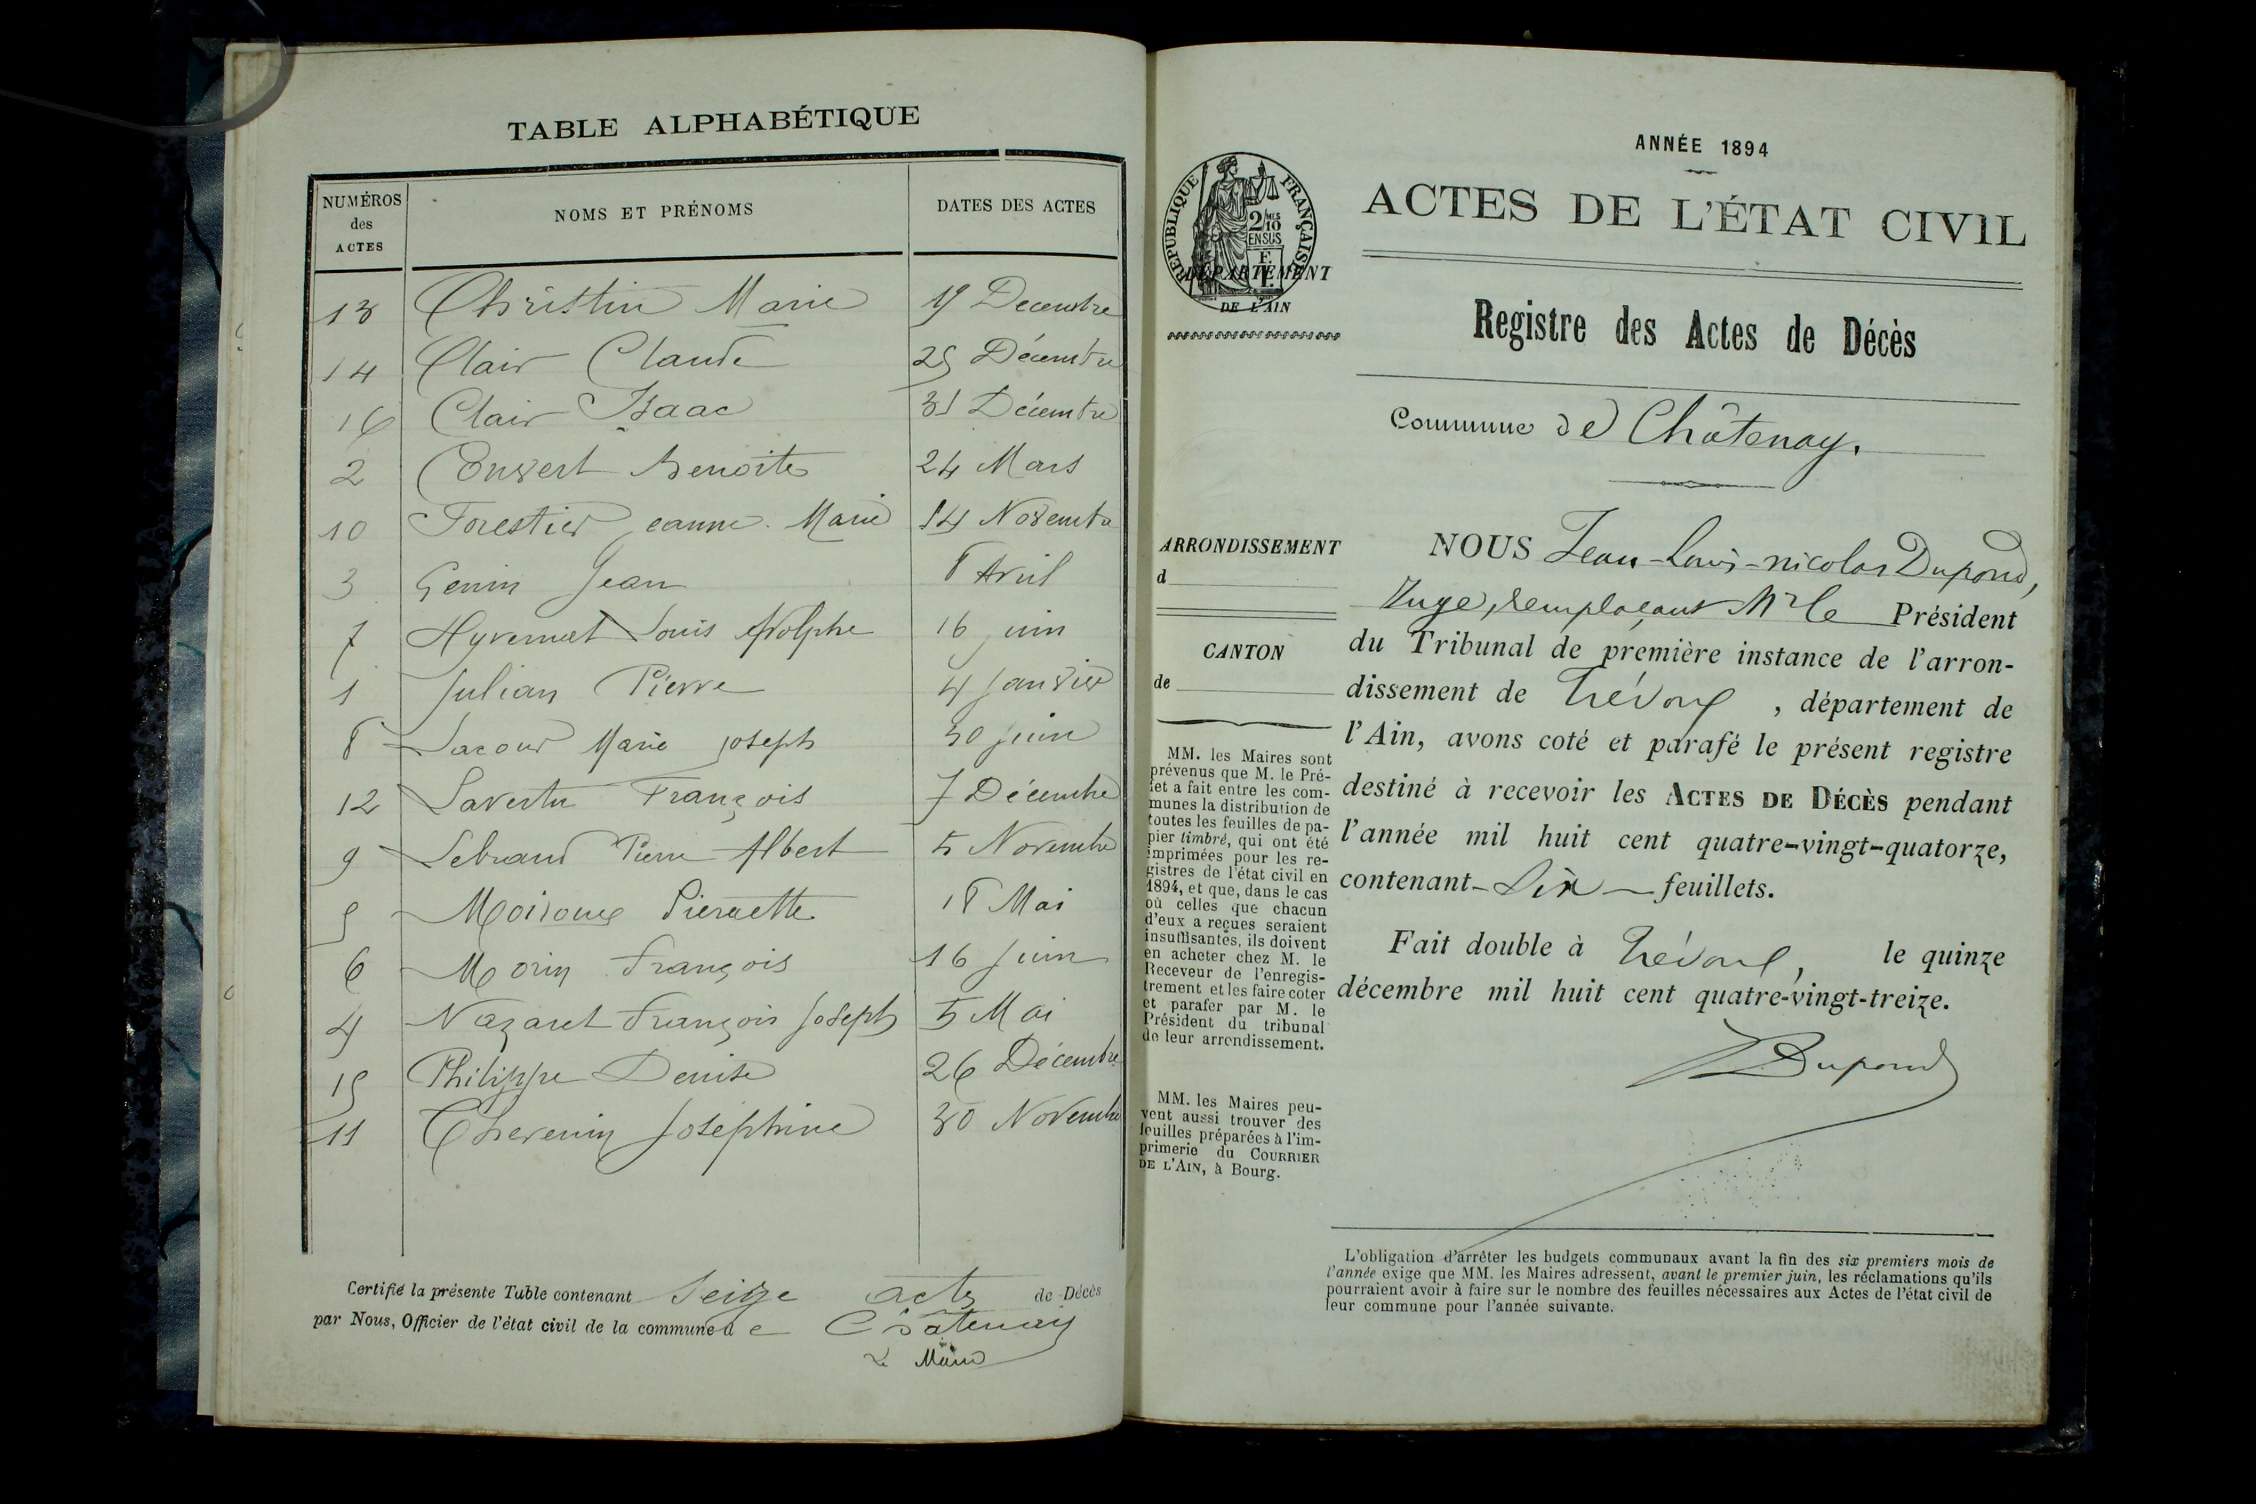 TABLE ALPHABÉTIQUE
NUMÉROS des ACTES NOMS ET PRÉNOMS DATES DES ACTES
13 Christin Marie 19 Decembre
14 Clair Claude 25 Décembre
16 Clair Isaac 31 Décembre
2 Convert Benoite 24 Mars
10 Forestier Jeanne Marie 14 Novembre
3 Genin Jean 8 Avril
7 Hyvernat Louis Adolphe 16 juin
1 Julian Pierre 4 Janvier
8 Lacour Marie Joseph 30 juin
12 Lavertu François 7 Décembre
9 Lebrand Pierre Albert 5 Novembre
5 Pierrette 18 Mai
6 Morin François 16 Juin
4 Nazaret François Joseph 5 Mai
15 Philippe Denise 26 Décembre
11 Thevenin Joséphine 30 Novembre
Certifié la présente Table contenant Seize acts de Décès
par Nous, Officier de l'état civil de la commune de Châtenay
Le Maire
ANNÉE 1894
ACTES DE L'ÉTAT CIVIL
RÉPUBLIQUE FRANÇAISE
2/10
EN SUS
DÉPARTEMENT
DE L'AIN
Registre des Actes de Décès
Commune de Châtenay.
ARRONDISSEMENT
d
CANTON
de
MM. les Maires sont
prévenus que M. le Pré-
fet a fait entre les com-
munes la distribution de
toutes les feuilles de pa-
pier timbré, qui ont été
imprimées pour les re-
gistres de l'état civil en
1894, et que, dans le cas
où celles que chacun
d'eux a reçues seraient
insuffisantes, ils doivent
en acheter chez M. le
Receveur de l'enregis-
trement et les faire coter
et parafer par M. le
Président du tribunal
de leur arrondissement.
MM. les Maires peu-
vent aussi trouver des
feuilles préparées à l'im-
primerie du COURRIER
DE L'AIN, à Bourg.
NOUS Jean-Louis-nicolas Dupond,
Juge, remplaçant Mr le Président
du Tribunal de première instance de l'arron-
dissement de Trévoux, département de
l'Ain, avons coté et parafé le présent registre
destiné à recevoir les ACTES DE DÉCÈS pendant
l'année mil huit cent quatre-vingt-quatorze,
contenant Six feuillets.
Fait double à Trévoux, le quinze
décembre mil huit cent quatre-vingt-treize.
Dupond
L'obligation d'arrêter les budgets communaux avant la fin des six premiers mois de
l'année exige que MM. les Maires adressent, avant le premier juin, les réclamations qu'ils
pourraient avoir à faire sur le nombre des feuilles nécessaires aux Actes de l'état civil de
leur commune pour l'année suivante.